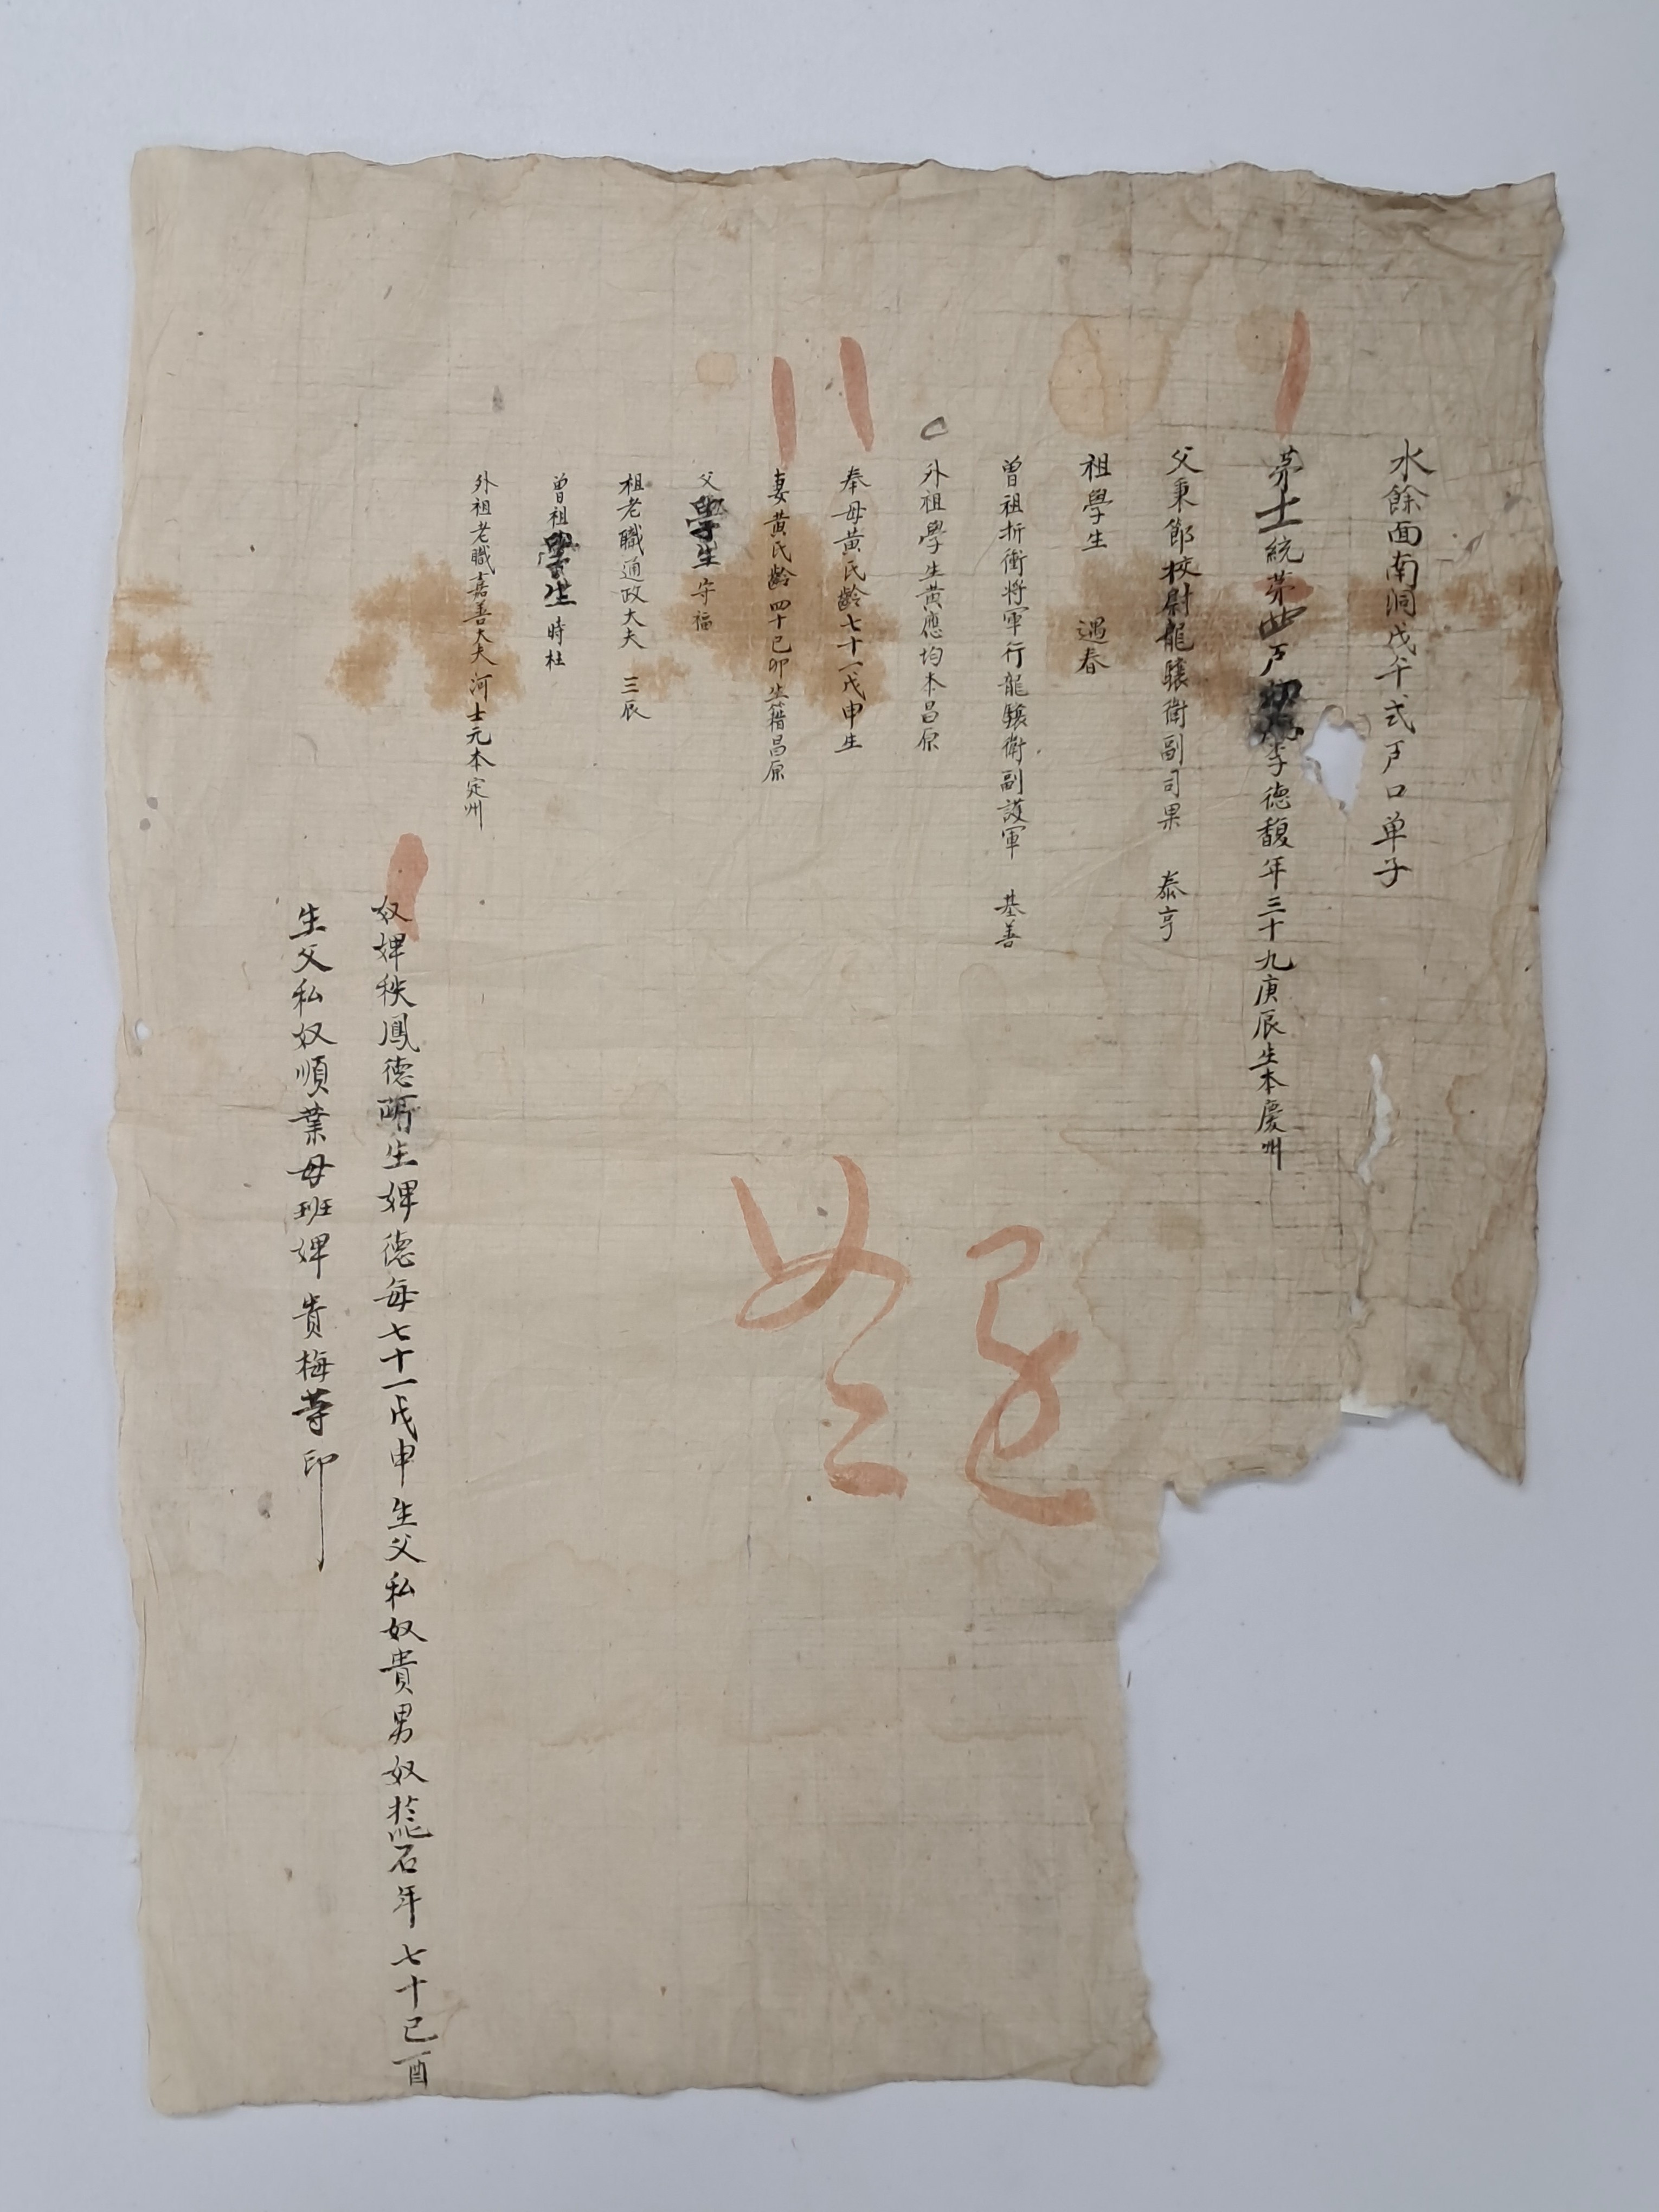 水餘面南洞戊午式戶口单子
苐十統苐四戶幼學李德馥年三十九庚辰生本慶州
父秉節校尉龍驤衛副司果 泰亨
祖學生 遇春
曾祖折衝將軍行龍驤衛副護軍 基善
外祖學生黃應均本昌原
奉母黃氏齡七十一戊申生
妻黃氏齡四十己卯生籍昌原
父學生 守福
祖老職通政大夫 三辰
曾祖學生 時杜
外祖老職嘉善大夫河士元本定州
奴婢秩鳳德所生婢德每七十一戊申生父私奴貴男奴石年七十己酉
生父私奴順業母班婢貴梅等印